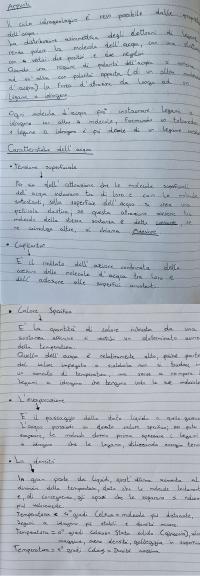 Acqua
Il ciclo idrogeologico è reso possibile dalle proprietà
dell'acqua.
La distribuzione asimmetrica degli elettroni di legame
rende polare la molecola dell'acqua, con una
con
Quando una regione di polarità dell'acqua si avvicina
ad un'altra con polarità opposta (di un'altra molecola
d'acqua) la forza d'attrazione dà luogo ad un
Legame a idrogeno
Ogni molecola d'acqua può instaurare legami a
idrogeno con altre 4 molecole, formando un tetraedro
Il legame a idrogeno è più debole di un legame
Caratteristiche dell'acqua
• Tensione superficiale
Per via dell'attrazione che le molecole superficiali
dell'acqua esercitano tra di loro e con le molecole
sottostanti, sulla superficie dell'acqua si crea una
pellicola elastica, se questa attrazione avviene tra
molecole della stessa sostanza è detta coesione se
se coinvolge altre, si chiama Adesione
• Capillarità
È il risultato dell'azione combinata della
coesione delle molecole d'acqua tra loro e
dell'adesione alle superfici
• Calore Specifico
È la quantità di calore richiesta da una
sostanza affinché si verifichi un determinato aumento
della temperatura.
Quello dell'acqua è relativamente alto, poiché parte
del calore impiegato a scaldarla non si traduce in
un aumento di temperatura, ma serve a rompere i
legami a idrogeno che tengono unite le sue molecole
• L'evaporazione
È il passaggio dallo stato liquido a quello gassoso
L'acqua possiede un elevato calore specifico, per poter
evaporare, le molecole devono prima spezzare i legami
a idrogeno che le legano, utilizzando energia
• La densità
In gran parte dei liquidi, quest'ultima aumenta al
diminuire della temperatura, dato che le molecole
e, di conseguenza, gli spazi che le separano si riducono
più velocemente.
Temperatura < 4° gradi Celsius = molecole più distanziate,
legami a idrogeno più stabili e densità minore.
Temperatura = 0° gradi Celsius = Stato solido (ghiaccio),
maggiore, meno densità, galleggia in superficie
Temperatura = 4° gradi Celsius = Densità massima